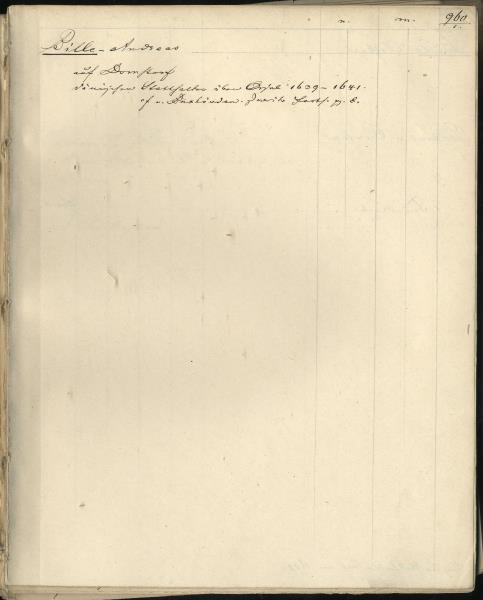 n. m. 960.
Bille - Andreas
auf Damsbo
dänischer Statthalter über Oesel 1639 - 1641.
cf v. Buxhövden. Zweite Forts. pg. 8.